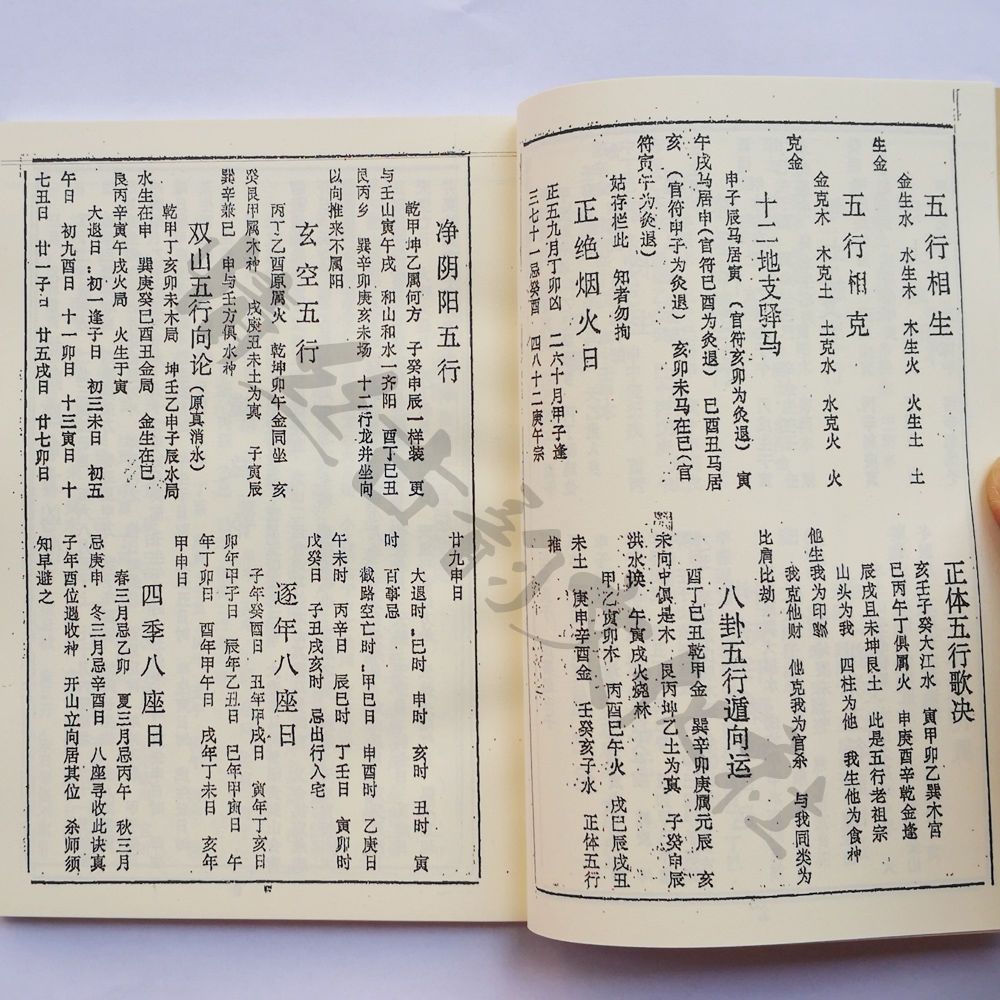 五行相生
金生水　水生木　木生火　火生土　土
生金
五行相克
金克木　木克土　土克水　水克火　火
克金
十二地支驿马
申子辰马居寅（官符亥卯为灸退）寅
午戌马居申（官符巳酉为灸退）巳酉丑马居
亥（官符申子为灸退）亥卯未马在巳（官
符寅午为灸退）
姑存栏此　知者勿拘
正绝烟火日
正五九月丁卯凶　二六十月甲子逢
三七十一忌癸酉　四八十二庚午宗
正体五行歌决
亥壬子癸大江水　寅甲卯乙巽木宫
巳丙午丁俱属火　申庚酉辛乾金逢
辰戌丑未坤艮土　此是五行老祖宗
山头为我　四柱为他　我生他为食神
他生我为印　我克他财　他克我为官杀　与我同类为
比肩比劫
八卦五行遁向运
酉丁巳丑乾甲金　巽辛卯庚属元辰　亥
未向中俱是木　艮丙坤乙土为真　子癸申辰
洪水涣　午寅戌火烧林
甲乙寅卯木　丙丁巳午火　戌巳辰戌丑
未土　庚申辛酉金　壬癸亥子水　正体五行
推
净阴阳五行
乾甲坤乙属何方　子癸申辰一样装　更
与壬山寅午戌　和山和水一齐阳　酉丁巳丑
艮丙乡　巽辛卯庚亥未场　十二行龙并坐向
以向推来不属阳
玄空五行
丙丁乙酉原属火　乾坤卯午金同坐　亥
癸艮甲属木神　戌庚丑未土为真　子寅辰
巽辛兼巳　申与壬方俱水神
双山五行向论（原真消水）
乾甲丁亥卯未木局　坤壬乙申子辰水局
水生在申　巽庚癸巳酉丑金局　金生在巳
艮丙辛寅午戌火局　火生于寅
大退日：初一逢子日　初三未日　初五
午日　初九酉日　十一卯日　十三寅日　十
七丑日　廿一子日　廿五戌日　廿七卯日
廿九申日
大退时：巳时　申时　亥时　丑时　寅
时　百事忌
截路空亡时：甲巳日　申酉时　乙庚日
午未时　丙辛日　辰巳时　丁壬日　寅卯时
戊癸日　子丑戌亥时　忌出行入宅
逐年八座日
子年癸酉日　丑年甲戌日　寅年丁亥日
卯年甲子日　辰年乙丑日　巳年甲寅日　午
年丁卯日　酉年甲午日　戌年丁未日　亥年
甲申日
四季八座日
春三月忌乙卯　夏三月忌丙午　秋三月
忌庚申　冬三月忌辛酉日　八座寻收此诀真
子年酉位遇收神　开山立向居其位　杀师须
知早避之